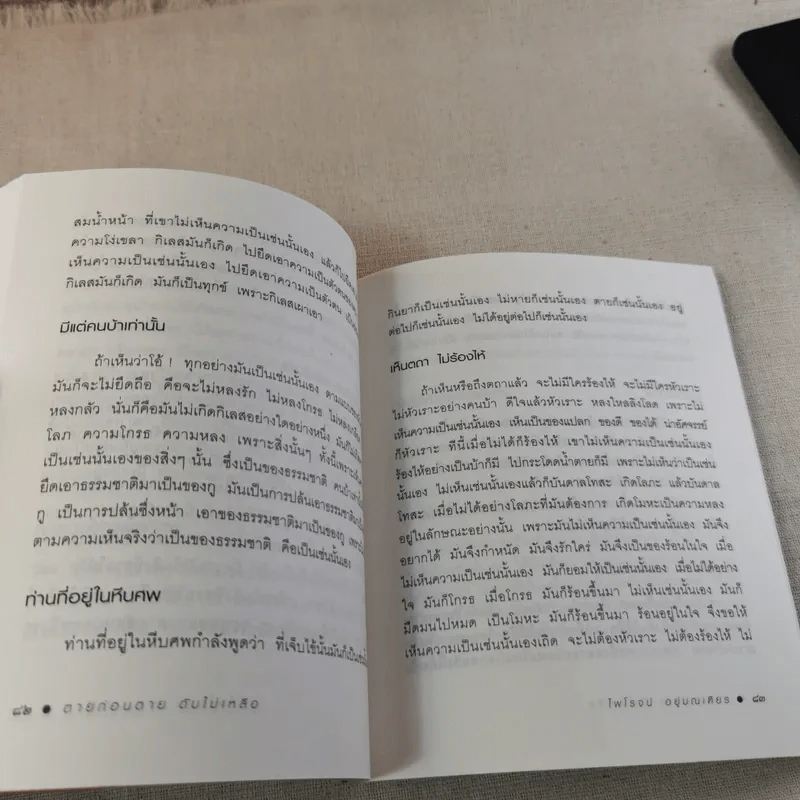 สมน้ำหน้า ที่เขาไม่เห็นความเป็นเช่นนั้นเอง แล้วก็ไป
ความโง่เขลา กิเลสมันก็เกิด ไปยึดเอาความเป็นตัวตน
เห็นความเป็นเช่นนั้นเอง ไปยึดเอาความเป็นตัวตน
กิเลสมันก็เกิด มันก็เป็นทุกข์ เพราะกิเลสเผาเอา
มีแต่คนบ้าเท่านั้น
ถ้าเห็นว่าโอ้ ! ทุกอย่างมันเป็นเช่นนั้นเอง
มันก็จะไม่ยึดถือ คือจะไม่หลงรัก ไม่หลงโกรธ ไม่หลงเกลียด
หลงกลัว นั่นก็คือมันไม่เกิดกิเลสอย่างใดอย่างหนึ่ง
โลภ ความโกรธ ความหลง เพราะสิ่งนั้นๆ ทั้งนี้เพราะเห็น
เป็นเช่นนั้นเองของสิ่งๆ นั้น ซึ่งเป็นของธรรมชาติ
ยึดเอาธรรมชาติมาเป็นของกู มันเป็นการปล้นเอาธรรมชาติ
กู เป็นการปล้นซึ่งหน้า เอาของธรรมชาติมาเป็นของกู
ตามความเห็นจริงว่าเป็นของธรรมชาติ คือเป็นเช่นนั้นเอง
ท่านที่อยู่ในหีบศพ
ท่านที่อยู่ในหีบศพกำลังพูดว่า ที่เจ็บไข้นั้นมันก็เป็น
๘๒ ● ตายก่อนตาย ดับไม่เหลือ
กินยาก็เป็นเช่นนั้นเอง ไม่หายก็เช่นนั้นเอง ตายก็เช่นนั้นเอง อยู่
ต่อไปก็เช่นนั้นเอง ไม่ได้อยู่ต่อไปก็เช่นนั้นเอง
เห็นตถา ไม่ร้องไห้
ถ้าเห็นหรือถึงตถาแล้ว จะไม่มีใครร้องไห้ จะไม่มีใครหัวเราะ
ไม่หัวเราะอย่างคนบ้า ดีใจแล้วหัวเราะ หลงใหลลิงโลด เพราะไม่
เห็นความเป็นเช่นนั้นเอง เห็นเป็นของแปลก ของดี ของได้ น่าอัศจรรย์
ก็หัวเราะ ทีนี้เมื่อไม่ได้ก็ร้องไห้ เขาไม่เห็นความเป็นเช่นนั้นเอง
ร้องไห้อย่างเป็นบ้าก็มี ไปกระโดดน้ำตายก็มี เพราะไม่เห็นว่าเป็นเช่น
นั้นเอง ไม่เห็นเช่นนั้นเองแล้วก็บันดาลโทสะ เกิดโลภะ แล้วบันดาล
โทสะ เมื่อไม่ได้อย่างโลภะที่มันต้องการ เกิดโมหะเป็นความหลง
อยู่ในลักษณะอย่างนั้น เพราะมันไม่เห็นความเป็นเช่นนั้นเอง มันจึง
อยากได้ มันจึงกำหนัด มันจึงรักใคร่ มันจึงเป็นของร้อนในใจ เมื่อ
ไม่เห็นความเป็นเช่นนั้นเอง มันก็ยอมให้เป็นเช่นนั้นเอง เมื่อไม่ได้อย่าง
ใจ มันก็โกรธ เมื่อโกรธ มันก็ร้อนขึ้นมา ไม่เห็นเช่นนั้นเอง มันก็
มืดมนไปหมด เป็นโมหะ มันก็ร้อนขึ้นมา ร้อนอยู่ในใจ จึงขอให้
เห็นความเป็นเช่นนั้นเองเถิด จะไม่ต้องหัวเราะ ไม่ต้องร้องไห้ ไม่
ไพโรจน์ อยู่มณเฑียร ● ๘๓